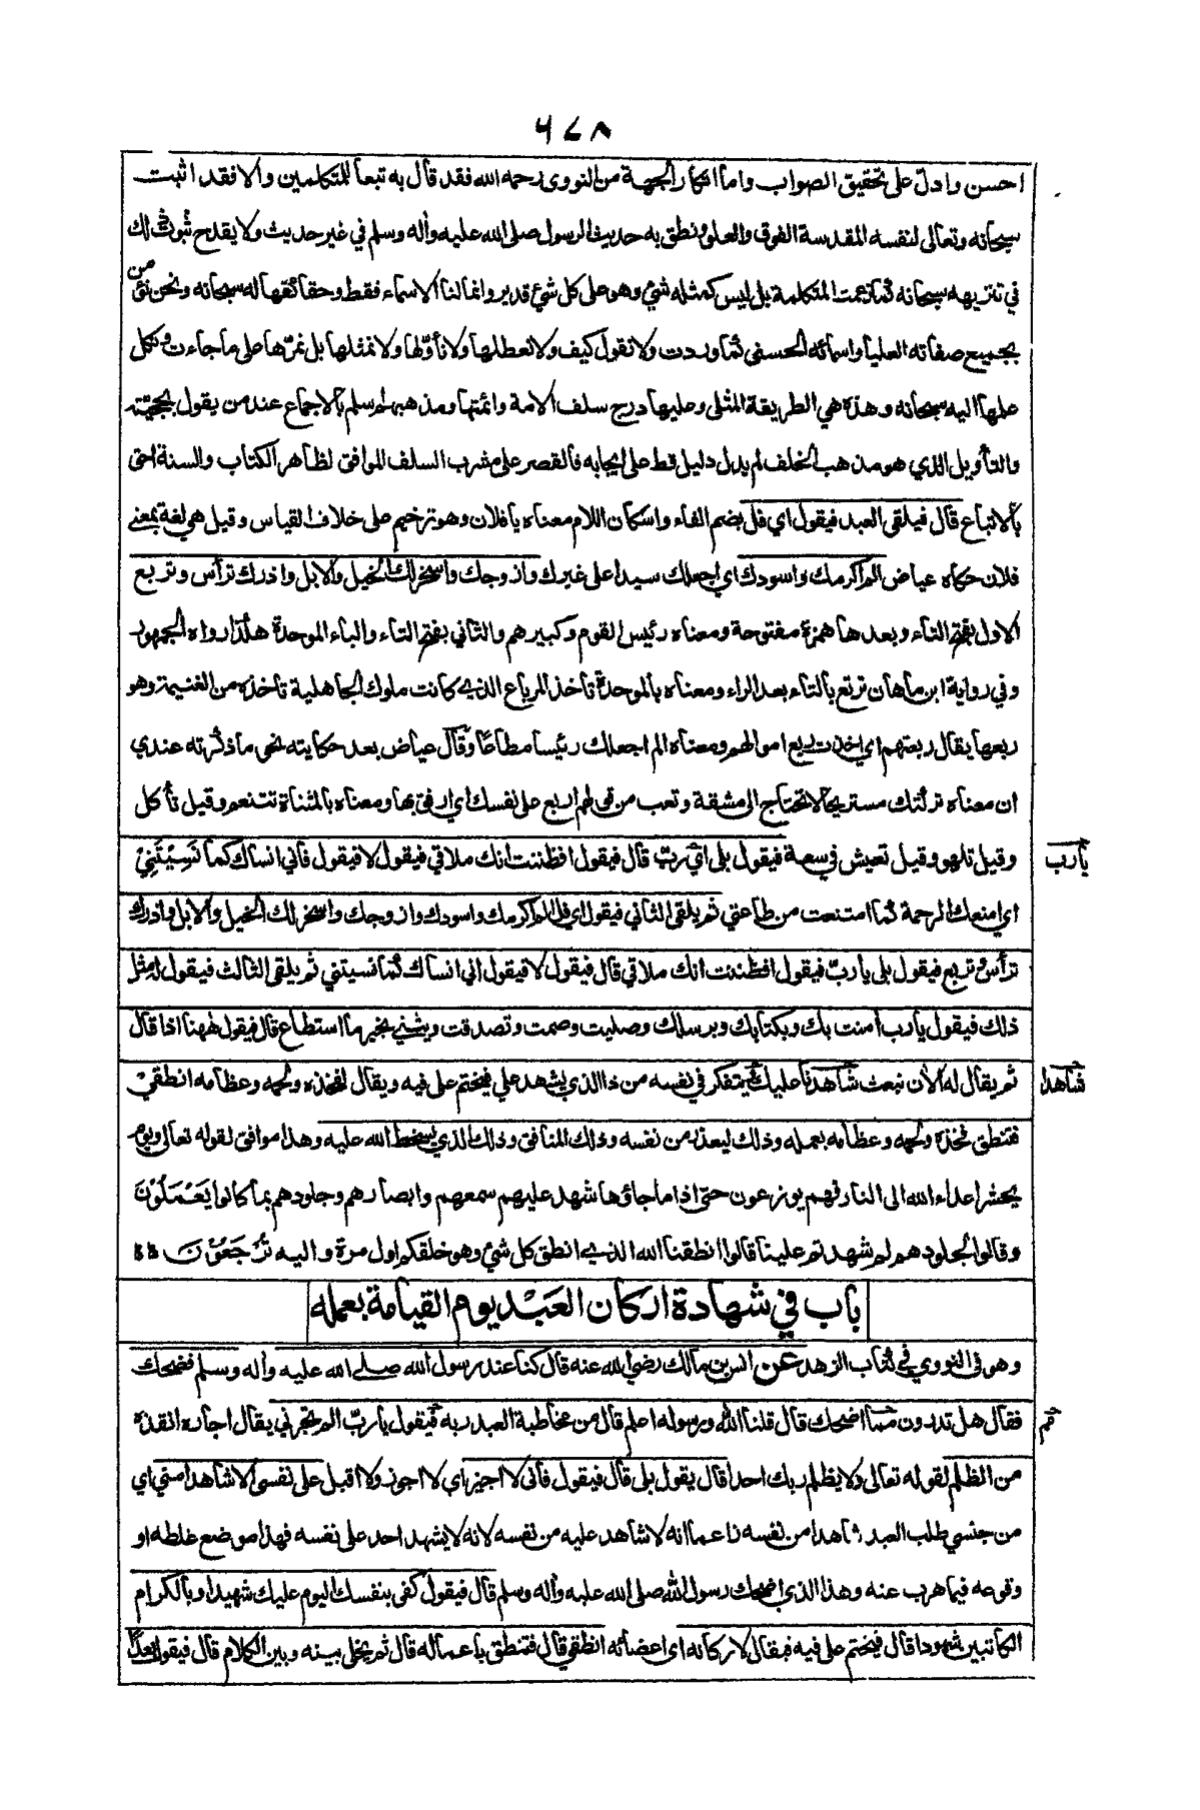 ٦٧٨
احسن وادل على تحقيق الصواب واما انكار الجهة من النووى رحمه الله فقد قال به تبعا للمتكلمين والا فقد اثبت
سبحانه وتعالى لنفسه المقدسة الفوق والعلو ونطق به حديث الرسول صلى الله عليه واله وسلم في غير حديث ولا يقدح ثبوت ذلك
في تنزيهه سبحانه كما زعمت المتكلمة بل ليس كمثله شئ وهو على كل شئ قدير وانما لنا الاسماء فقط وحقائقها له سبحانه ونحن نؤمن
بجميع صفاته العليا واسمائه الحسنى كما وردت ولا نقول كيف ولا نعطلها ولا نأولها ولا نمثلها بل نمرها على ما جاءت ونكل
علمها اليه سبحانه وهذه هي الطريقة المثلى وعليها درج سلف الامة وائمتها ومذهبهم اسلم بالاجماع عند من يقول بحجيته
والتأويل الذي هو مذهب الخلف لم يدل دليل قط على ايجابه فالقصر على مشرب السلف الموافق لظاهر الكتاب والسنة احق
بالاتباع قال فيلقى العبد فيقول اي فل بضم الفاء واسكان اللام معناه يا فلان وهو ترخيم على خلاف القياس وقيل هي لغة بمعنى
فلان حكاه عياض الم اكرمك واسودك اي اجعلك سيدا على غيرك وازوجك واسخر لك الخيل والابل واذرك ترأس وتربع
الاول بفتح التاء وبعدها همزة مفتوحة ومعناه رئيس القوم وكبيرهم والثاني بفتح التاء والباء الموحدة هكذا رواه الجمهور
وفي رواية ابن ماهان ترتع بالتاء بعد الراء ومعناه بالموحدة تأخذ المرباع الذي كانت ملوك الجاهلية تاخذه من الغنيمة وهو
ربعها يقال ربعتهم اي اخذت ربع اموالهم ومعناه الم اجعلك رئيسا مطاعا وقال عياض بعد حكايته نحو ما ذكرته عندي
ان معناه تركتك مستريحا لا تحتاج الى مشقة وتعب من قولهم اربع على نفسك اي ارفق بها ومعناه بالمثناة تتنعم وقيل تأكل
وقيل تلهو وقيل تعيش في سعة فيقول بلى اي رب قال فيقول افظننت انك ملاقي فيقول لا فيقول فاني انساك كما نَسِيْتَنِيْ
يارب
اي امنعك الرحمة كما امتنعت من طاعتي ثم يلقى الثاني فيقول اي فل الم اكرمك واسودك وازوجك واسخر لك الخيل والابل واذرك
ترأس وتربع فيقول بلى يا ربّ فيقول افظننت انك ملاقي قال فيقول لا فيقول اني انساك كما نسيتني ثم يلقى الثالث فيقول له مثل
ذلك فيقول يا رب امنت بك وبكتابك وبرسلك وصليت وصمت وتصدقت ويثني بخير ما استطاع قال فيقول ههنا اذا قال
ثم يقال له الأن نبعث شاهدنا عليك فيتفكر في نفسه من ذا الذي يشهد علي فيختم على فيه ويقال لفخذه ولحمه وعظامه انطقيْ
شاهدا
فتنطق فخذه ولحمه وعظامه بعمله وذلك ليعذر من نفسه وذلك المنافق وذلك الذي يسخط الله عليه وهذا موافق لقوله تعالى ويوم
يحشر اعداء الله الى النار فهم يوزعون حتى اذا ما جاؤها شهد عليهم سمعهم وابصارهم وجلودهم بما كانوا يَعْمَلُوْنَ
وقالوا لجلودهم لم شهدتم علينا قالوا انطقنا الله الذي انطق كل شئ وهو خلقكم اول مرة واليه تُرْجَعُوْنَ
باب في شهادة اركان العَبْد يوم القيامة بعمله
وهو في النووي في كتاب الزهد عن انس بن مالك رضي الله عنه قال كنا عند رسول الله صلى الله عليه واله وسلم فضحك
فقال هل تدرون مما اضحك قال قلنا الله ورسوله اعلم قال من مخاطبة العبد ربه فيقول يا ربّ الم تجرني يقال اجاره انقذه
قم
من الظلم لقوله تعالى ولا يظلم ربك احدا قال يقول بلى قال فيقول فانى لا اجيز اي لا اجوز ولا اقبل على نفسي الا شاهدا مني اي
من جنسي طلب العبد شاهدا من نفسه زاعما انه لا شاهد عليه من نفسه لانه لا يشهد احد على نفسه فهذا موضع غلطه او
وقوعه فيما هرب عنه وهذا الذي اضحك رسول الله صلى الله عليه واله وسلم قال فيقول كفى بنفسك اليوم عليك شهيدا وبالكرام
الكاتبين شهودا قال فيختم على فيه فيقال لاركانه اى اعضائه انطقي قال فتنطق باعماله قال ثم يخلى بينه وبين الكلام قال فيقول بعدًا